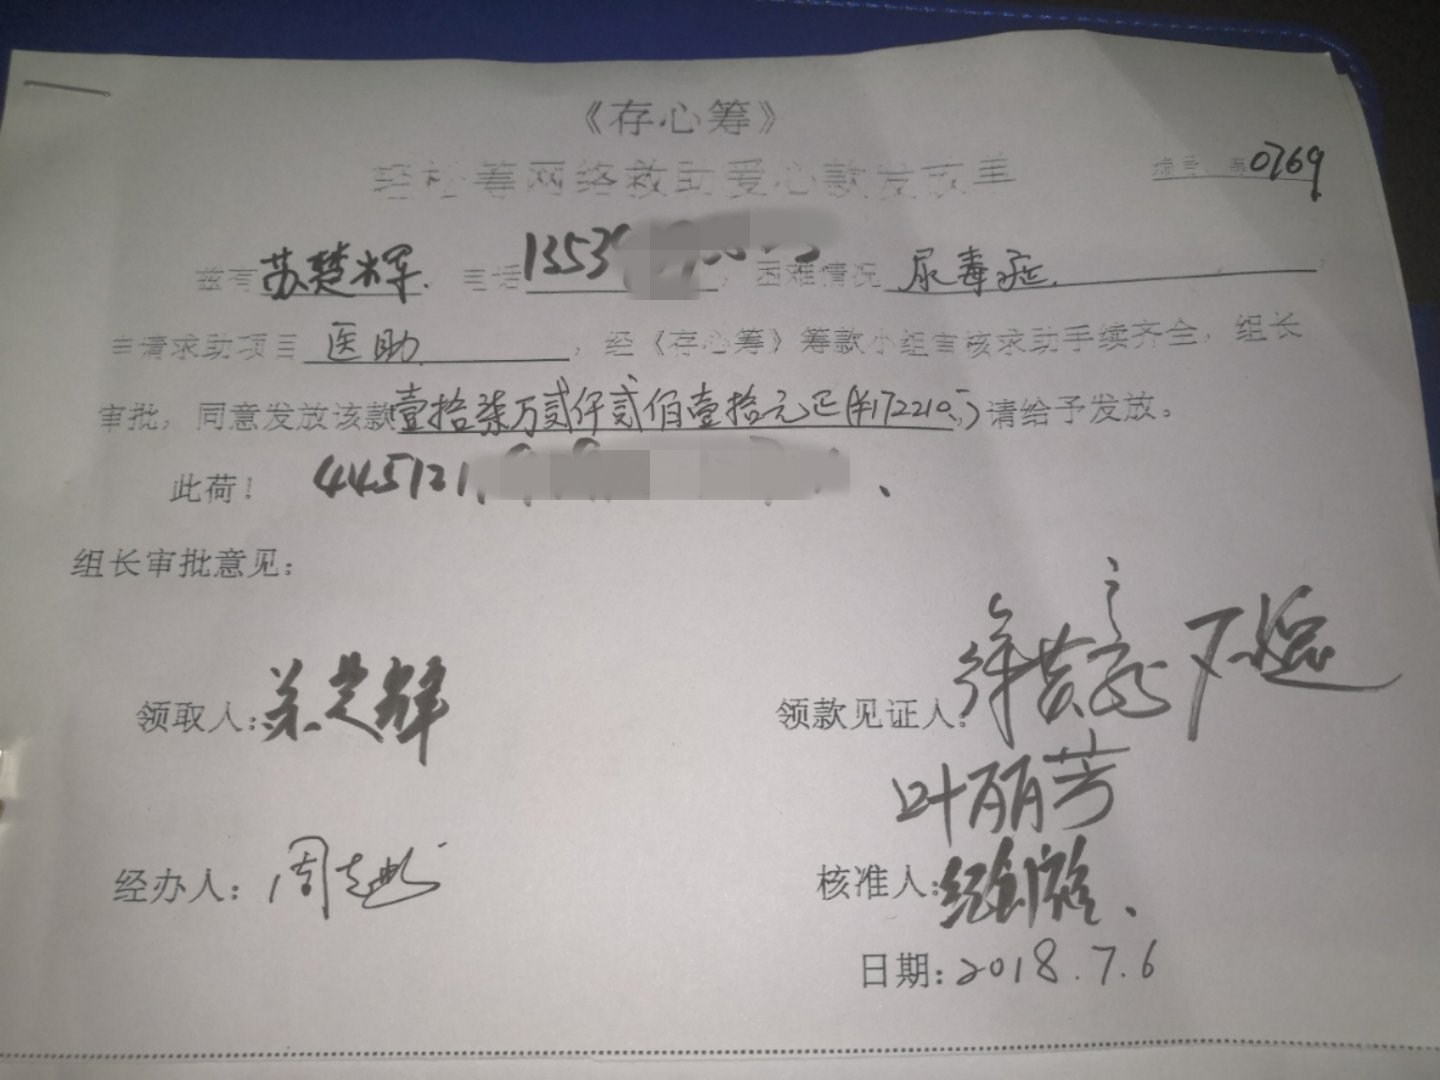 《存心筹》
轻松筹网络救助爱心款发放单
编号：第0769
兹有苏楚辉，电话1353，困难情况尿毒症，
申请求助项目医助，经《存心筹》筹款小组审核求助手续齐全，组长
审批，同意发放该款壹拾柒万贰仟贰佰壹拾元正(¥172210.)请给予发放。
此荷！ 445121
组长审批意见：
领取人：苏楚辉 领款见证人：
叶丽芳
经办人：周 核准人：
日期：2018.7.6